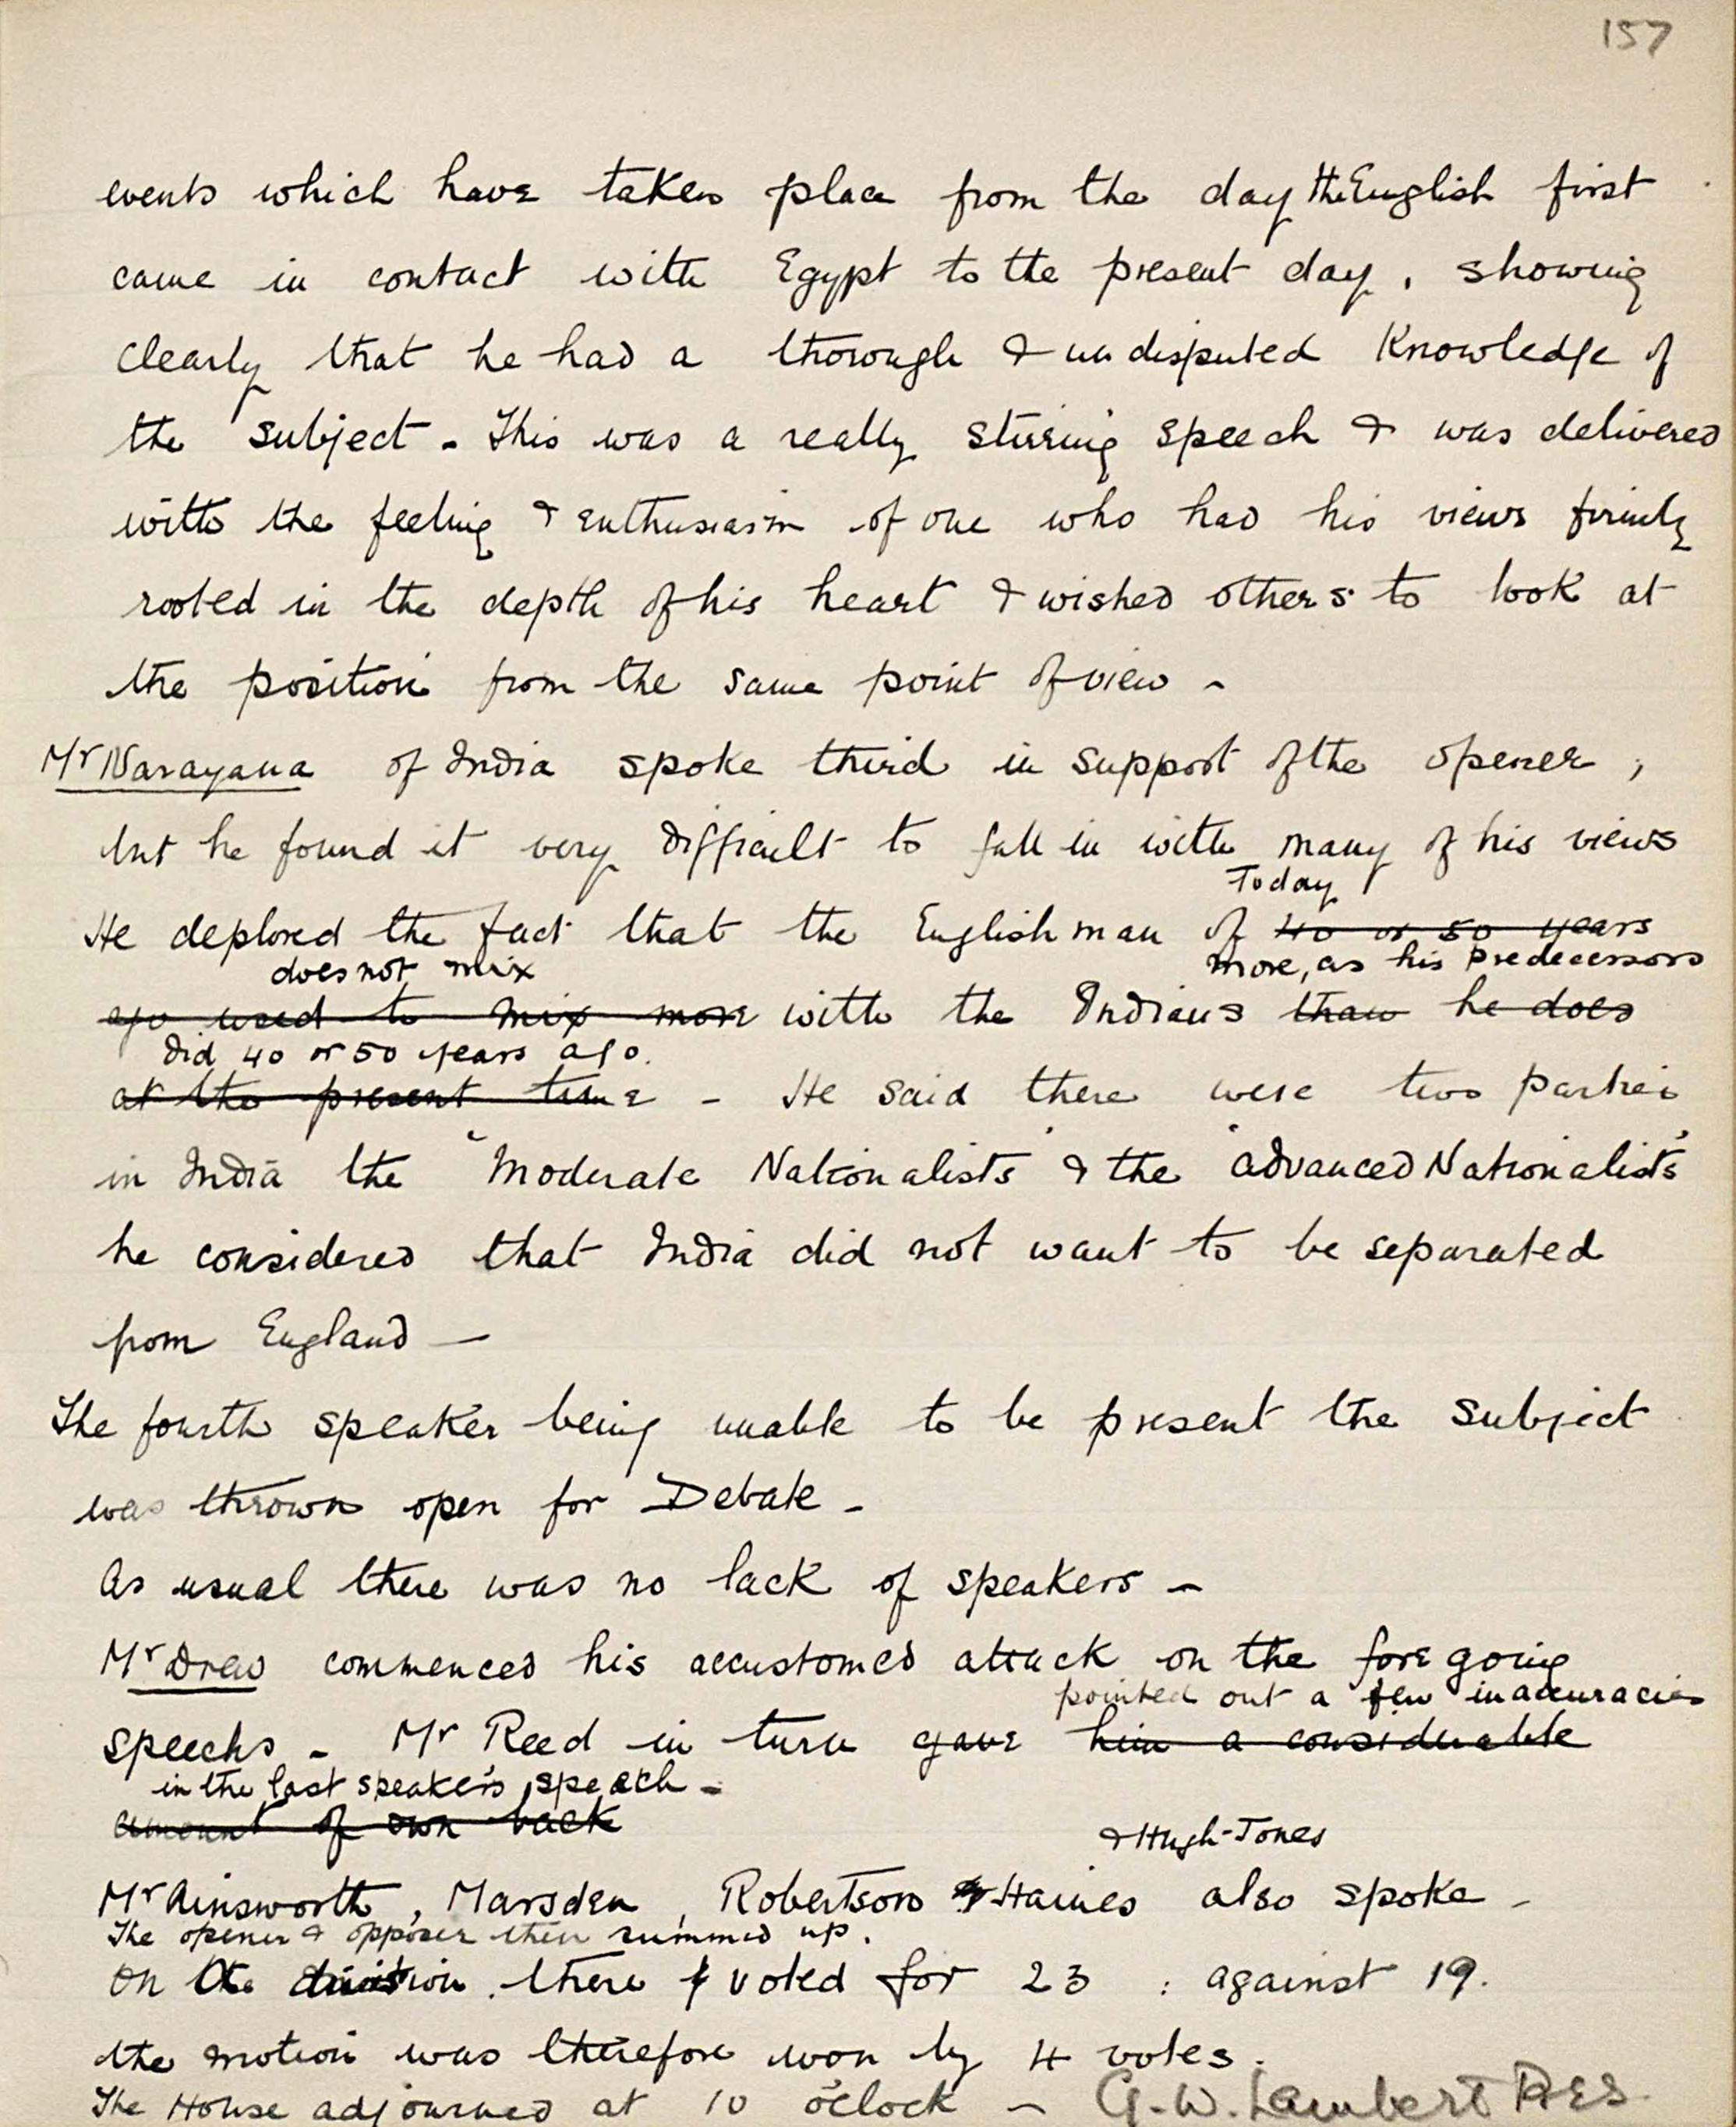 157
events which have taken place from the day the English first
came in contact with Egypt to the present day, showing
clearly that he had a thorough & undisputed Knowledge of
the subject - This was a really stirring speech & was delivered
with the feeling & enthusiasm of one who had his views firmly
rooted in the depth of his heart & wished others to look at
the position from the same point of view -
Mr Narayana of India spoke third in support of the opener,
but he found it very difficult to fall in with many of his views
Today
He deplored the fact that the Englishman of 40 or 50 years
does not mix more, as his predecessors
ago used to mix more with the Indians than he does
did 40 or 50 years ago.
at the present time - He said there were two parties
in India the "Moderate Nationalists" & the "advanced Nationalists"
he considered that India did not want to be separated
from England —
The fourth speaker being unable to be present the subject
was thrown open for Debate -
As usual there was no lack of speakers -
Mr Drew commenced his accustomed attack on the foregoing
pointed out a few inaccuracies
speechs - Mr Reed in turn gave him a considerable
in the last speaker's speech -
amount of own back
& Hugh-Jones
Mr Ainsworth, Marsden, Robertson & Haines also spoke -
The opener & opposer then summed up.
On the division there voted for 23 : against 19.
the motion was therefore won by 4 votes.
The House adjourned at 10 o'clock - G. W. Lambert PRES.